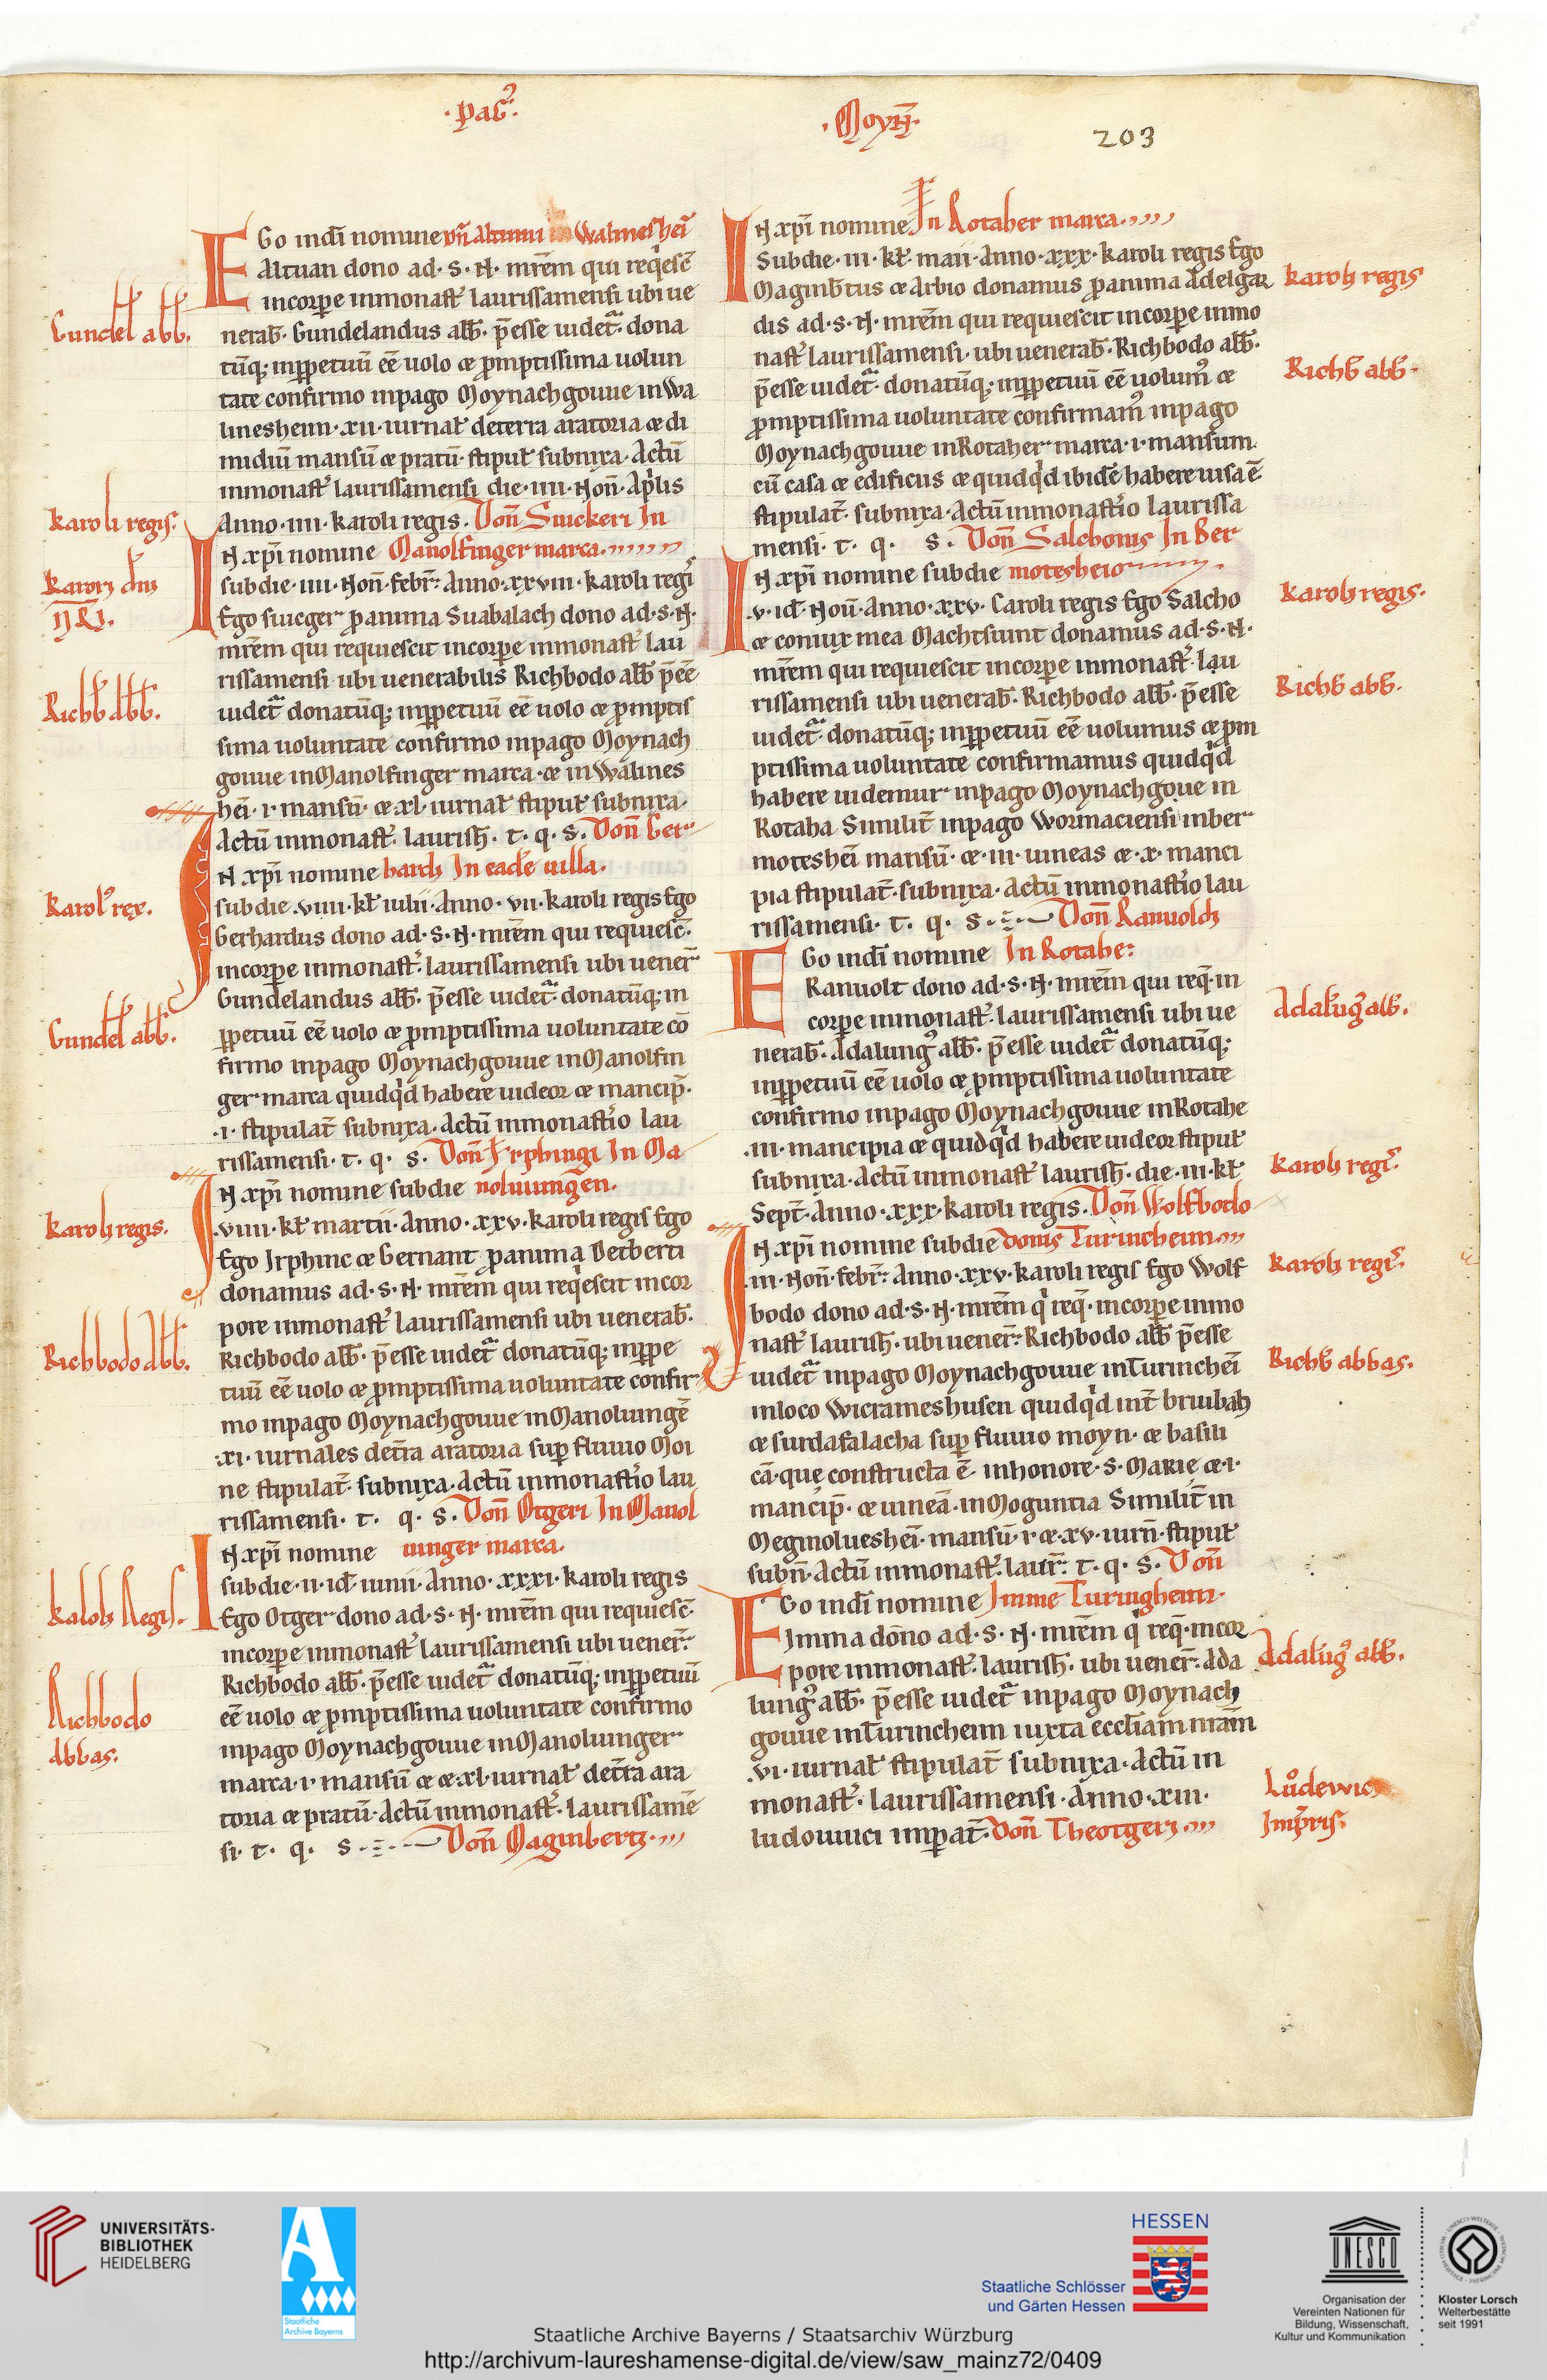 · pag̅ ·
· Moyn̅ ·
203
EGo in dī nomine Don̅ Altuuni in Walineshei̅
Altuan dono ad · S · N · mr̅em qui req̇esc̅
in corꝑe in monast̅ laurissamensi ubi ue
nerab̅ · Gundelandus abb̅ · p̅esse uidet̅ · dona
tu̅q; in ꝑpetuu̅ ee̅ uolo ⁊ ꝓmptissima uolun
tate confirmo in pago Moynachgouue in Wa
lineshem · xii · iurnal̅ de terra aratoria ⁊ di
midiu̅ mansu̅ ⁊ pratu̅ · stipul̅ subnixa · Actu̅
in monast̅ laurissamensi die · iiii · Non̅ · Ap̅lis
Anno · iiii · karoli regis. Don̅ Suickeri In
IN xp̅i nomine Manolfinger marca.
subdie · iiii · Non̅ · febr̅ · Anno · xxviii · karoli regi̅
Ego suicger ꝓ anima Suabalach dono ad · S · N ·
mr̅em qui requiescit in corꝑe in monast̅ lau
rissamensi ubi uenerabilis Richbodo abb̅ p̅ee̅
uidet̅ donatu̅q; in ꝑpetuu̅ ee̅ uolo ⁊ ꝓmptis
sima uoluntate confirmo in pago Moynach
gouue in Manolfinger marca · ⁊ in Walines
hei̅ · i · mansu̅ · ⁊ xl · iurnal̅ stipul̅ subnixa ·
Actu̅ in monast̅ · laurish̅ · t. q. s. Don̅ Ger
IN xp̅i nomine hardi In eade̅ uilla.
subdie · viiii · kl̅ iulii · Anno · vii · karoli regis Ego
Gerhardus dono ad · S · N · mr̅em qui requiesc̅ ·
in corꝑe in monast̅ · laurissamensi ubi uener̅
Gundelandus abb̅ · p̅esse uidet̅ · donatu̅q; in
ꝑpetuu̅ ee̅ uolo ⁊ ꝓmptissima uoluntate co̅
firmo in pago Moynachgouue in Manolfin
ger marca quidq̇d habere uideor ⁊ mancip̅ ·
· i · stipulat̅ subnixa · Actu̅ in monast̅io lau
rissamensi · t. q. s. Don̅ Irphingi In Ma
IN xp̅i nomine subdie noluuingen.
· viiii · kl̅ martii · Anno · xxv · karoli regis Ego
Ego Irphinc ⁊ Gernant ꝓ anima Betberti
donamus ad · S · N · mr̅em qui req̇escit in cor
pore in monast̅ laurissamensi ubi uenerab̅ ·
Richbodo abb̅ · p̅esse uidet̅ donatu̅q; in ꝑpe
tuu̅ ee̅ uolo ⁊ ꝓmptissima uoluntate confir
mo in pago Moynachgouue in Manoluinge̅
· xi · iurnales de t̅ra aratoria sup̅ fluuio Moi
ne stipulat̅ · subnixa · Actu̅ in monast̅io lau
rissamensi · t. q. s. Don̅ Otgeri In Manol
IN xp̅i nomine uinger marca.
subdie · ii · id̅ · iunii · Anno · xxxi · karoli regis
Ego Otger dono ad · S · N · mr̅em qui requiesc̅ ·
in corꝑe in monast̅ laurissamensi ubi uener̅ ·
Richbodo abb̅ · p̅esse uidet̅ donatu̅q; in ꝑpetuu̅
ee̅ uolo ⁊ ꝓmptissima uoluntate confirmo
in pago Moynachgouue in Manoluinger
marca · i · mansu̅ ⁊ ⁊ · xl · iurnal̅ de t̅ra ara
toria ⁊ pratu̅ · Actu̅ in monast̅ · laurissame̅
si · t. q. s. Don̅ Maginberti.
IN xp̅i nomine In Rotaher marca.
Subdie · iii · kl̅ · maii · Anno · xxx · karoli regis Ego
Maginb̅tus ⁊ Arbio donamus ꝓ anima Adelgar
dis ad · S · N · mr̅em qui requiescit in corꝑe in mo
nast̅ laurissamensi · ubi uenerab̅ · Richbodo abb̅ ·
p̅esse uidet̅ · donatu̅q; in ꝑpetuu̅ ee̅ uolum⁹ ⁊
ꝓmptissima uoluntate confirmam⁹ in pago
Moynachgouue in Rotaher marca · i · mansum
cu̅ casa ⁊ edificiis ⁊ quidq̇d ibide̅ habere uisa e̅ ·
stipulat̅ · subnixa · Actu̅ in monast̅io laurissa
mensi · t. q. s. Don̅ Salchonis In Ber
IN xp̅i nomine subdie moresheio
· v · id̅ · Nou̅ · Anno · xxv · Caroli regis Ego Salcho
⁊ coniux mea Machtsuint donamus ad · S · N ·
mr̅em qui requiescit in corꝑe in monast̅ · lau
rissamensi ubi uenerab̅ · Richbodo abb̅ · p̅esse
uidet̅ · donatu̅q; in ꝑpetuu̅ ee̅ uolumus ⁊ pm
ptissima uoluntate confirmamus quidq̇d
habere uidemur in pago Moynachgoue in
Rotaha Similit̅ in pago Wormaciensi in ber
moteshei̅ mansu̅ · ⁊ · iii · uineas ⁊ · x · manci
pia stipulat̅ · subnixa · Actu̅ in monast̅io lau
rissamensi · t. q. s. Don̅ Ranuoldi
EGo in dī nomine In Rotahe:
Ranuolt dono ad · S · N · mr̅em qui req̅ · in
corꝑe in monast̅ · laurissamensi ubi ue
nerab̅ · Adalung⁹ abb̅ · p̅esse uidet̅ donatu̅q;
in ꝑpetuu̅ ee̅ uolo ⁊ ꝓmptissima uoluntate
confirmo in pago Moynachgouue in Rotahe
· iii · mancipia ⁊ quidq̇d habere uideor stipul̅
subnixa · Actu̅ in monast̅ laurish̅ · die · iii · kl̅
Sept̅ · Anno · xxx · karoli regis. Don̅ Wolfbodo
IN xp̅i nomine subdie donis Turincheim
· iii · Non̅ · febr̅ · Anno · xxv · karoli regis Ego Wolf
bodo dono ad · S · N · mr̅em q̇ req̅ · in corꝑe in mo
nast̅ laurish̅ · ubi uener̅ · Richbodo abb̅ p̅esse
uidet̅ in pago Moynachgouue in Turinchei̅
in loco Wicrameshusen quidq̇d int̅ bruibah
⁊ surdafalacha sup̅ fluuio moyn · ⁊ basili
ca̅ · que constructa e̅ in honore · S · Marie ⁊ · i ·
mancip̅ · ⁊ uinea̅ · in Moguntia Similit̅ in
Meginolueshei̅ · mansu̅ · i · ⁊ · xv · iurn̅ · stipul̅
subn̅ · Actu̅ in monast̅ · laur̅ · t. q. s. Don̅
EGo in dī nomine Imme Turingheim ·
Imma dono ad · S · N · mr̅em q̇ req̅ · in cor
pore in monast̅ · laurish̅ · ubi uener̅ · Ada
lung⁹ abb̅ · p̅esse uidet̅ in pago Moynach
gouue in Turincheim iuxta eccl̅iam nr̅am
· vi · iurnal̅ stipulat̅ subnixa · Actu̅ in
monast̅ · laurissamensi · Anno · xiii ·
ludouuici imperat̅ · Don̅ Theotgeri.
Gundel̅ abb̅.
karoli regis.
Richb̅ abb̅.
karol⁹ rex.
Gundel̅ abb̅.
karoli regis.
Richbodo abb̅.
kaloli Regis.
Richbodo
Abbas.
karoli regis
Richb̅ abb̅ ·
karoli regis.
Richb̅ abb̅.
Adalūg⁹ abb̅.
karoli regi̅.
karoli regi̅.
Richb̅ abbas.
Adalūg⁹ abb̅.
Lůdewici
Imp̅ris.
UNIVERSITÄTS-
BIBLIOTHEK
HEIDELBERG
Staatliche
Archive Bayerns
HESSEN
Staatliche Schlösser
und Gärten Hessen
UNESCO
Organisation der
Vereinten Nationen für
Bildung, Wissenschaft,
Kultur und Kommunikation
Kloster Lorsch
Welterbestätte
seit 1991
Staatliche Archive Bayerns / Staatsarchiv Würzburg
http://archivum-laureshamense-digital.de/view/saw_mainz72/0409